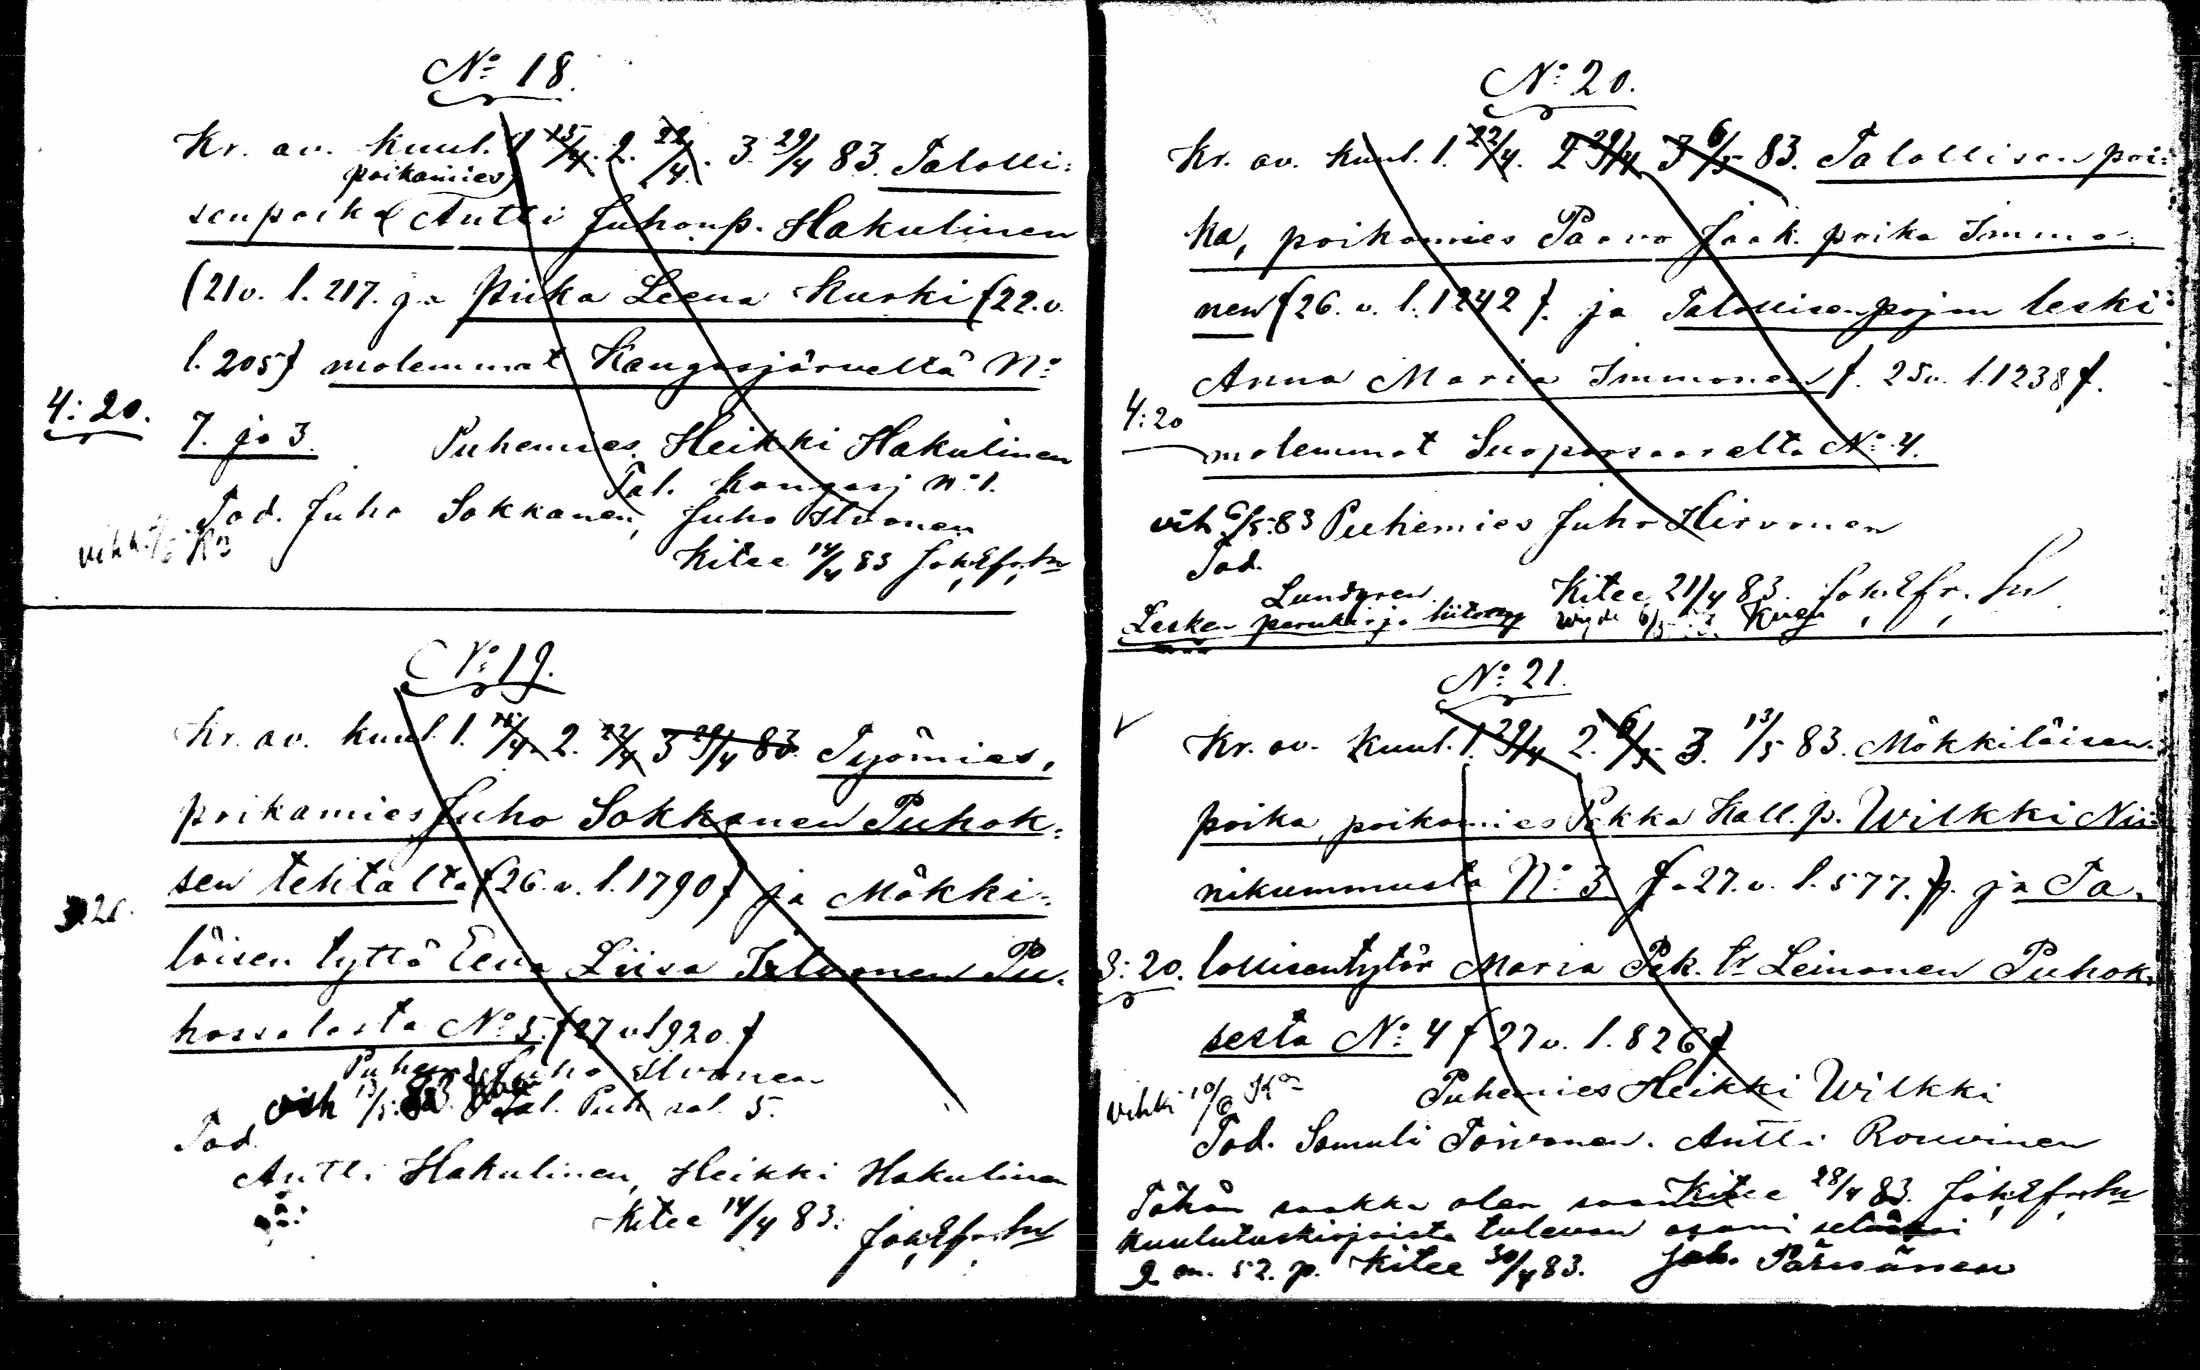 No 18.
Kr. av. kuul. 1 15/4. 2. 22/4. 3. 29/4 83. Talolli-
poikamies
senpoika Antti Juhonp. Hakulinen
(21 v. l. 217. ja Piika Leena Kurki (22. v.
l. 205) molemmat Kangasjärveltä No
4: 20.
7. ja 3. Puhemies Heikki Hakulinen
Tal. Kangasj No 1.
Tod. Juho Sokkanen, Juho Ilvonen
Kitee 14/4 83
No 19.
Kr. av. kuul. 1. 15/4. 2. 22/4 3 29/4 83. Työmies,
poikamies Juho Sokkanen Puhok-
sen tehtalta (26. v. l. 1790) ja Mökki-
3 20.
läisen tyttö Eeva Liisa Ilvonen Pu-
hossalosta No 5. (27 v l 920.)
Puhem. Juho Ilvonen
vih 13/5. 83. Tal. Puh sal. 5.
Tod.
Antti Hakulinen, Heikki Hakulinen
Kitee 14/4 83.
No 20.
Kr. av. kuul. 1. 22/4. 2 29/4 3 6/5 83. Talollisen poi-
ka, poikamies Paavo Jaak. poika Immo-
nen (26. v. l. 1242). ja Talollisenpojan leski
Anna Maria Immonen (. 25 v. l. 1238).
4: 20
molemmat Suoparsaarelta No 4.
vih 6/5 83 Puhemies Juho Hirvonen
Tod.
Lundgren. Kitee 21/4 83.
Lesken perukirja
No 21.
Kr. av. Kuul. 1. 29/4 2. 6/5 3. 13/5 83. Mökkiläisen-
poika, poikamies Pekka Hall. p. Wilkki Nii-
nikummusta No 3 (27. v. l. 577.) ja Ta-
3: 20. lollisentytär Maria Pek. tr Leinonen Puhok-
sesta No 4 (27 v. l. 826)
Puhemies Heikki Wilkki
vihki 10/6
Tod. Samuli Toivonen. Antti Rouvinen
Kitee 28/4 83.
Tähän saakka olen saanut
kuulutuskirjoista tulevan osani
9 m. 52. p. Kitee 30/4 83. Joh. Pärnänen